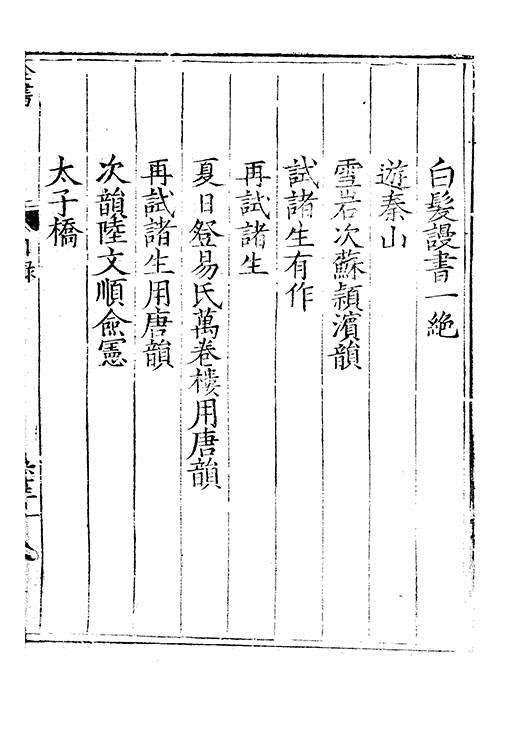 白髮謾書一絕
遊秦山
雪岩次蘇頴濱韻
試諸生有作
再試諸生
夏日登易氏萬卷樓用唐韻
再試諸生用唐韻
次韻陸文順僉憲
太子橋
全書
目錄